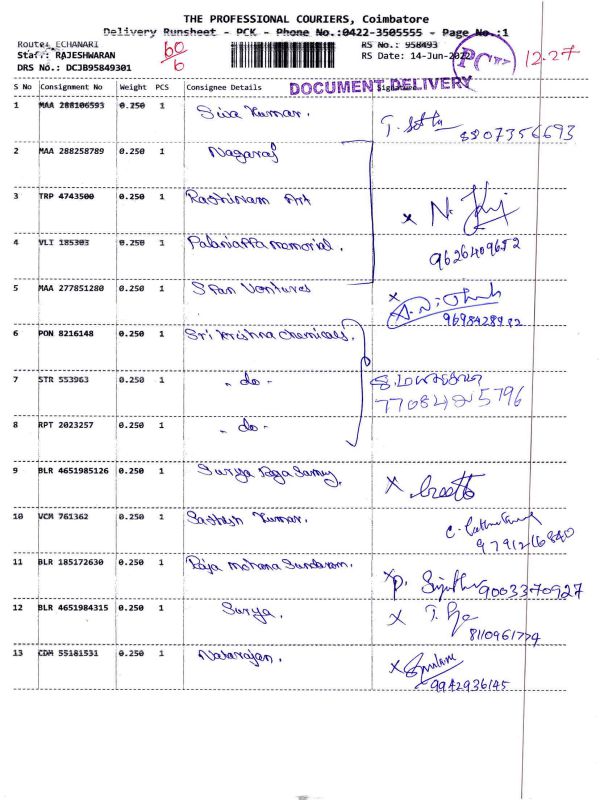 THE PROFESSIONAL COURIERS, Coimbatore
Delivery Runsheet - PCK - Phone No.:0422-3505555 - Page No.:1
Route: ECHANARI
60
6
RS No.: 958493
Staff: RAJESHWARAN
RS Date: 14-Jun-2022
12.27
DRS No.: DCJB95849301
DOCUMENT DELIVERY
S No Consignment No Weight PCS Consignee Details Signature
1 MAA 288106593 0.250 1 Siva Kumar. 8807356693
2 MAA 288258789 0.250 1 Nagaraj
3 TRP 4743500 0.250 1 Rathinam Art x N.
4 VLI 185303 0.250 1 Palaniappa memorial. 9626409652
5 MAA 277851280 0.250 1 Span Ventures x 9698428932
6 PON 8216148 0.250 1 Sri Krishna chemicals.
7 STR 553963 0.250 1 - do -
8 RPT 2023257 0.250 1 - do -
9 BLR 4651985126 0.250 1 Surya x
10 VCM 761362 0.250 1 Sathish Kumar.
11 BLR 185172630 0.250 1 Raja mohana Sundaram. x p. 9003370927
12 BLR 4651984315 0.250 1 Surya. x T. 8110961774
13 CDM 55181531 0.250 1 Natarajan. x 9942936145